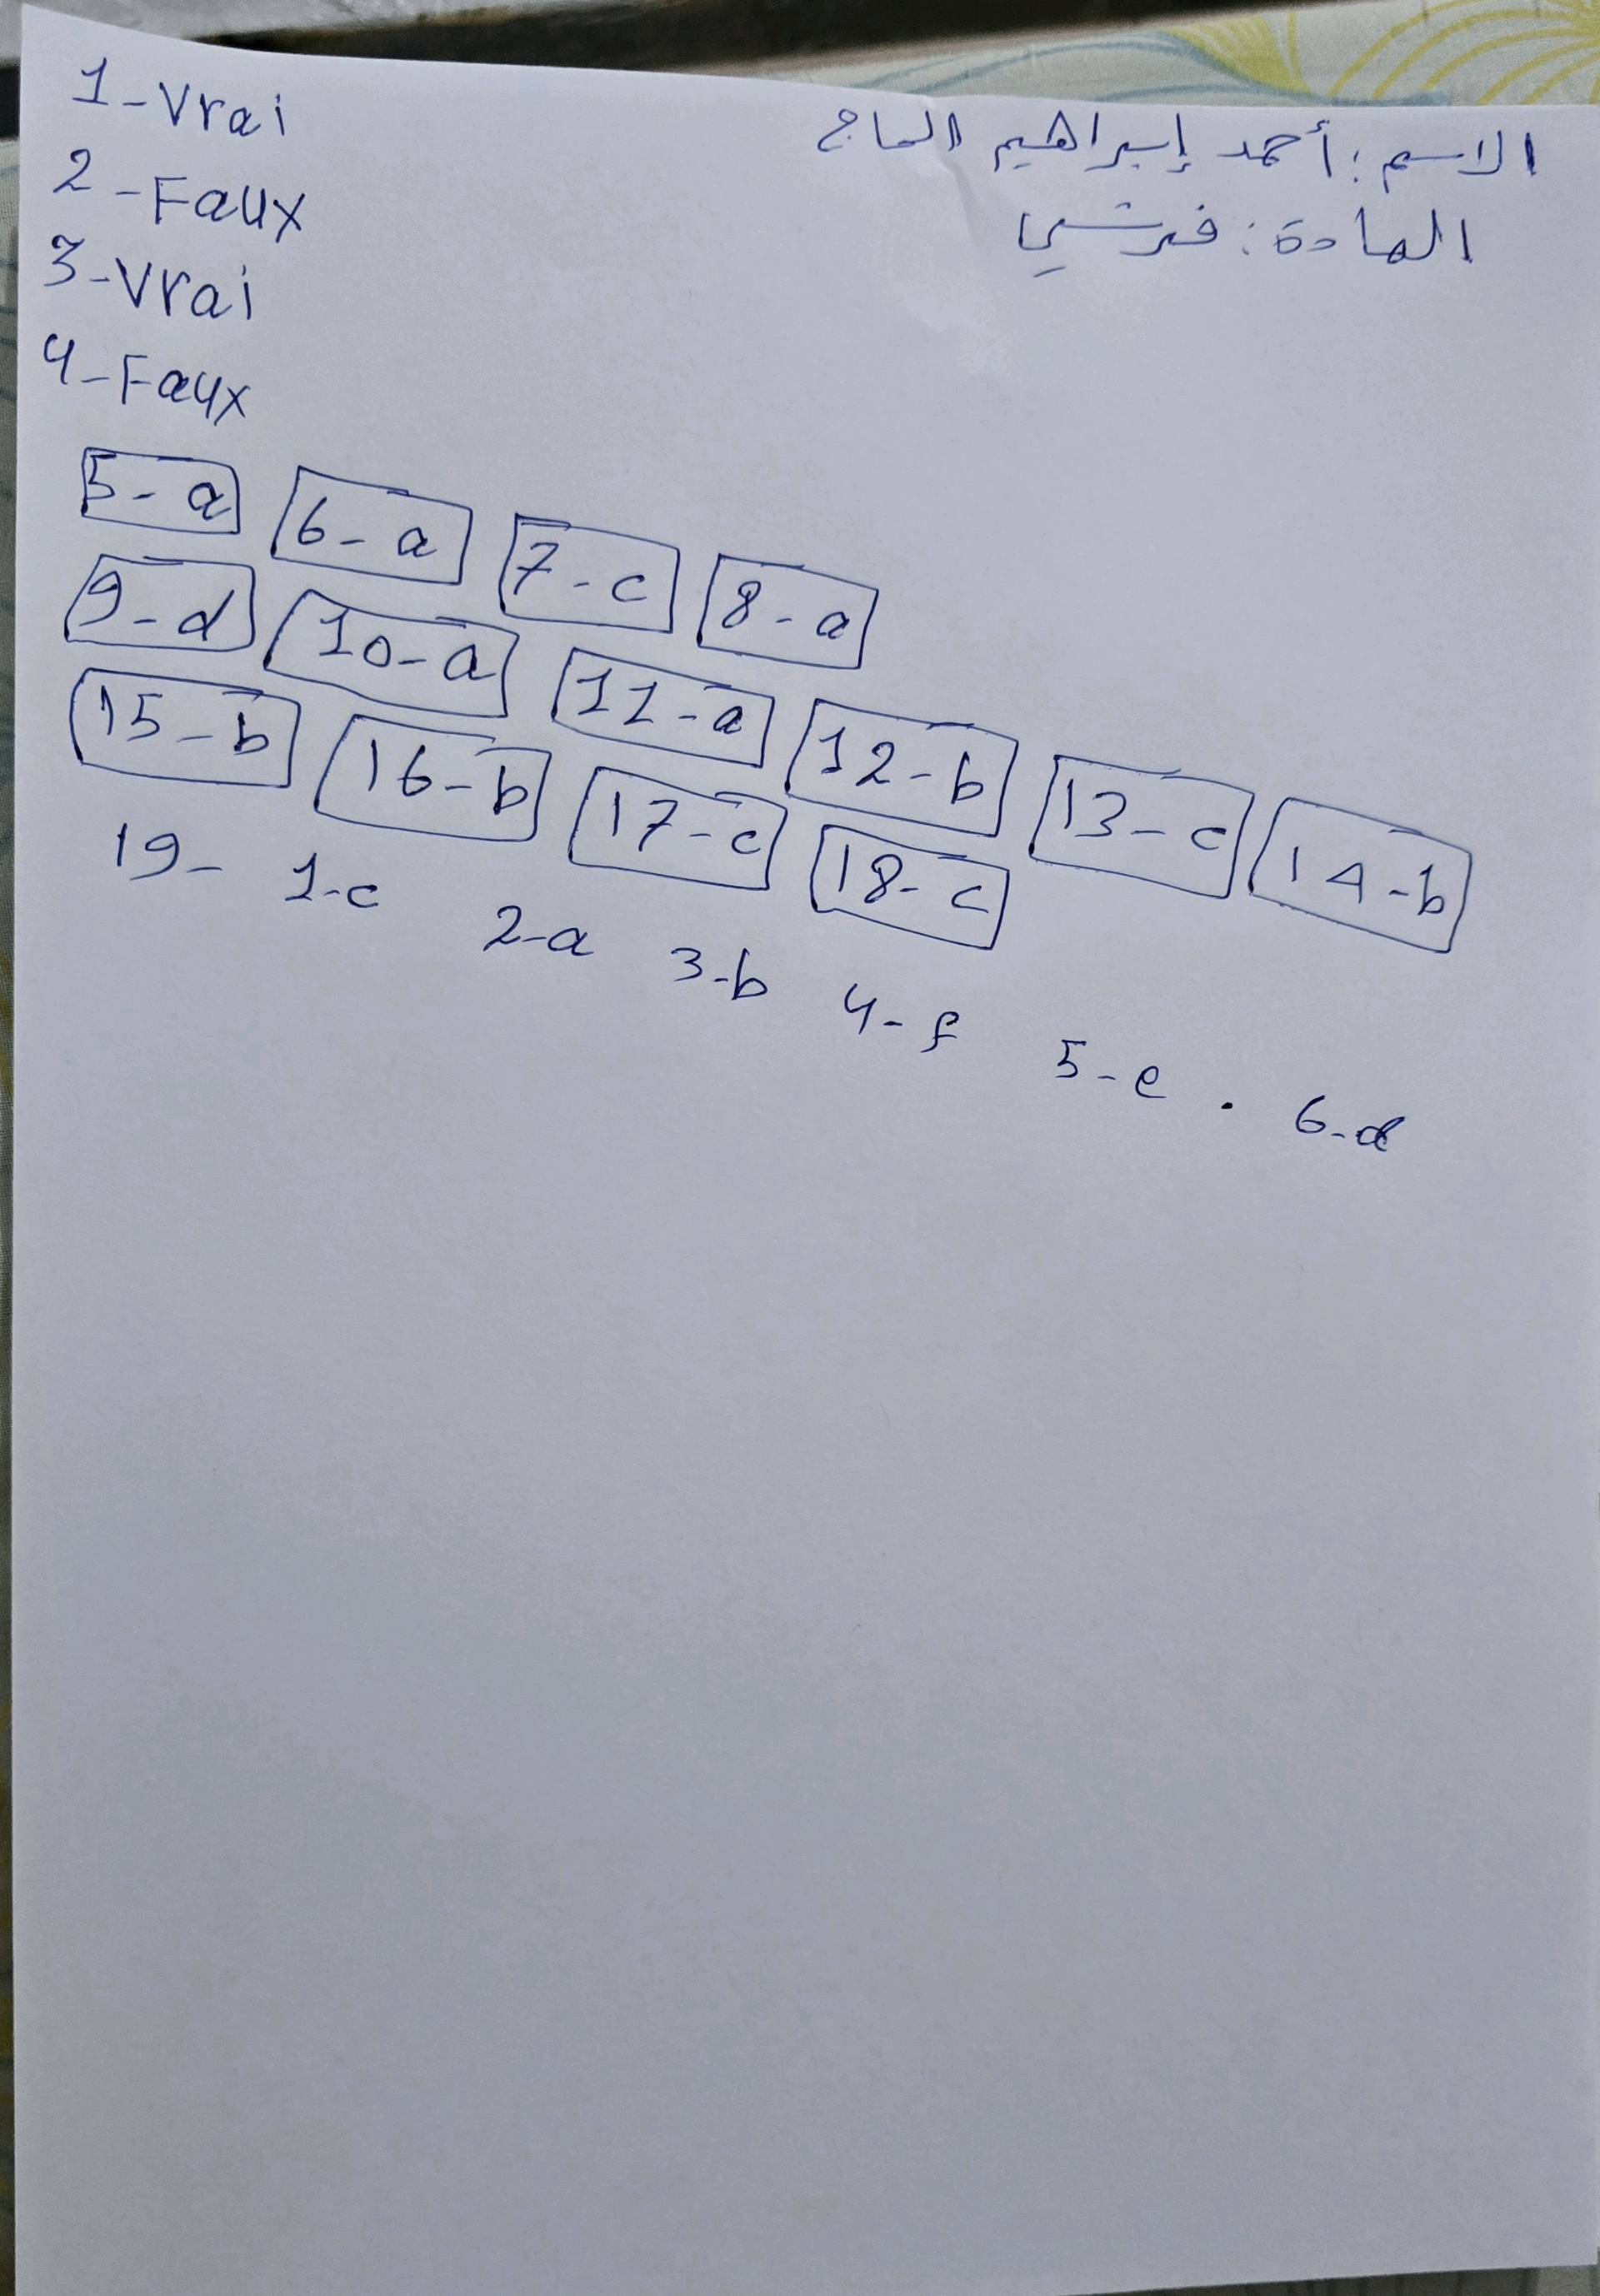 الاسم: أحمد إبراهيم الحاج
المادة: فرنسي
1-Vrai
2-Faux
3-Vrai
4-Faux
5-a 6-a 7-c 8-a
9-d 10-a 11-a 12-b 13-c 14-b
15-b 16-b 17-c 18-c
19- 1-c 2-a 3-b 4-f 5-e . 6-d